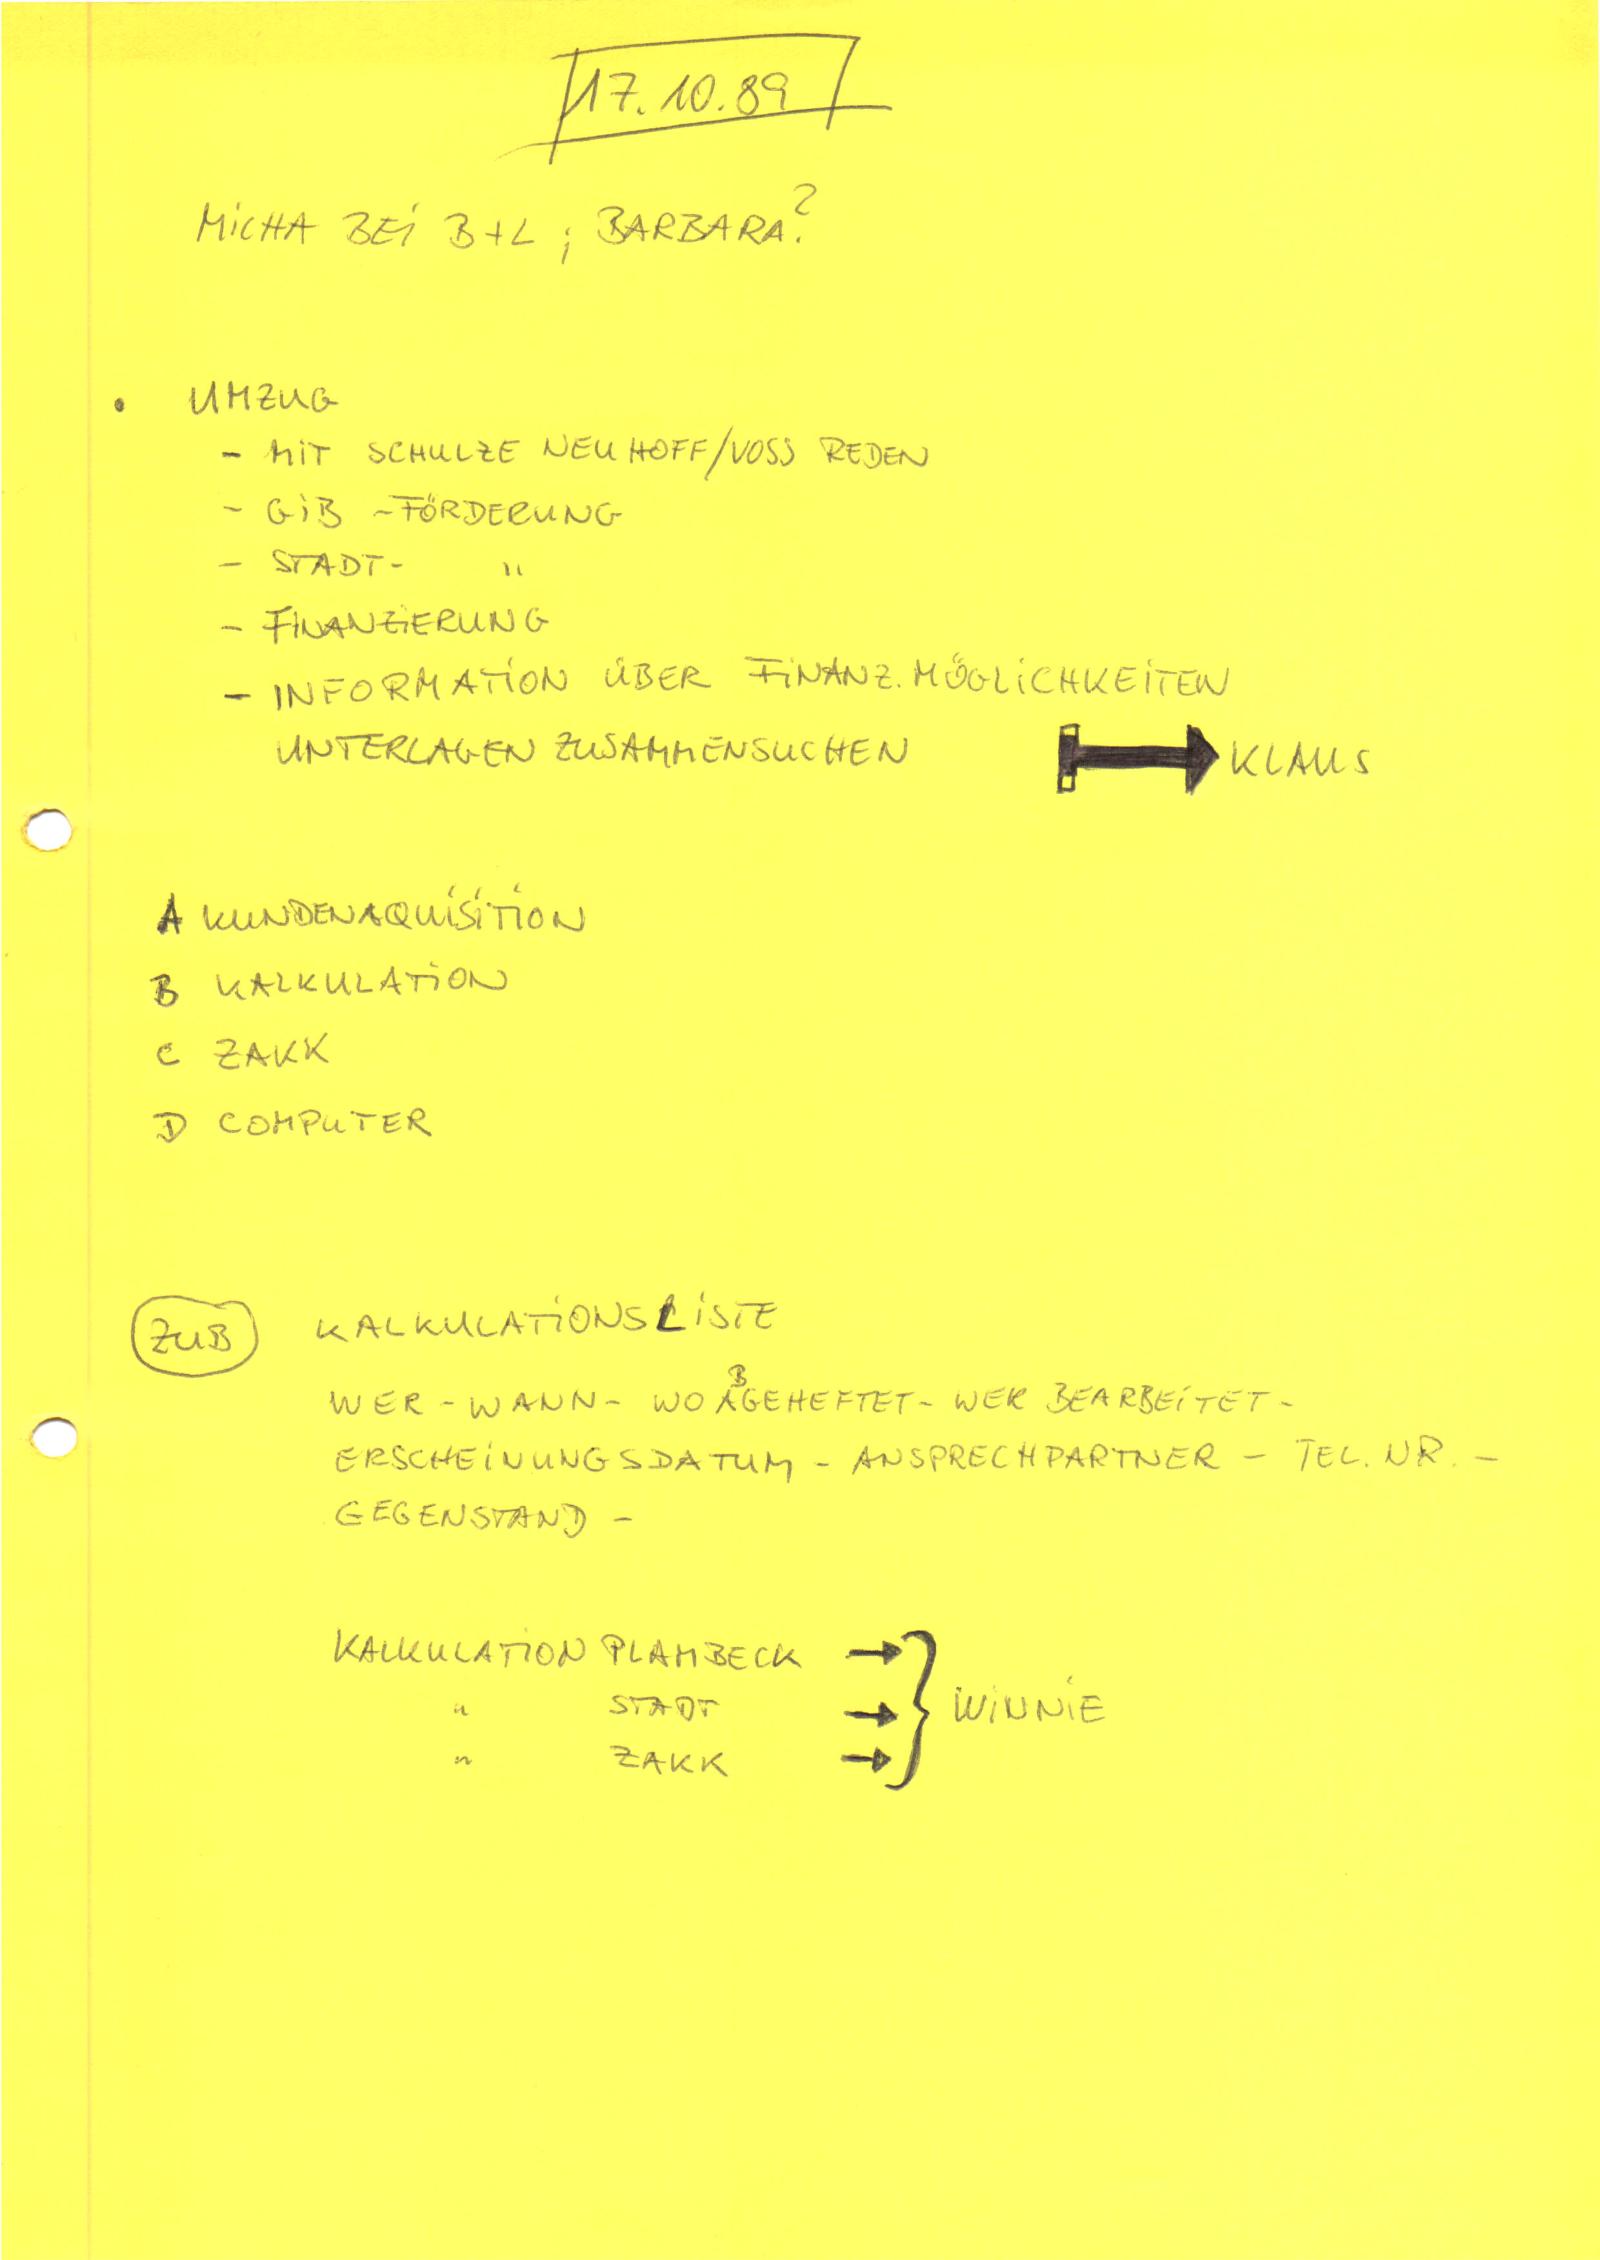 17.10.89
MiCHA BEi B+L ; BARBARA?
• UMZUG
- MiT SCHULZE NEUHOFF/VOSS REDEN
- GiB - FÖRDERUNG
- STADT- "
- FiNANZiERUNG
- INFORMATiON ÜBER FiNANZ. MÖGLiCHKEiTEN
UNTERLAGEN ZUSAMMENSUCHEN → KLAUS
A KUNDENAQUiSiTiON
B KALKULATiON
C ZAKK
D COMPUTER
ZU B KALKULATiONSLiSTE
WER - WANN - WO ABGEHEFTET - WER BEARBEiTET -
ERSCHEiNUNGSDATUM - ANSPRECHPARTNER - TEL. NR. -
GEGENSTAND -
KALKULATiON PLAMBECK →
" STADT → } WiNNiE
" ZAKK →